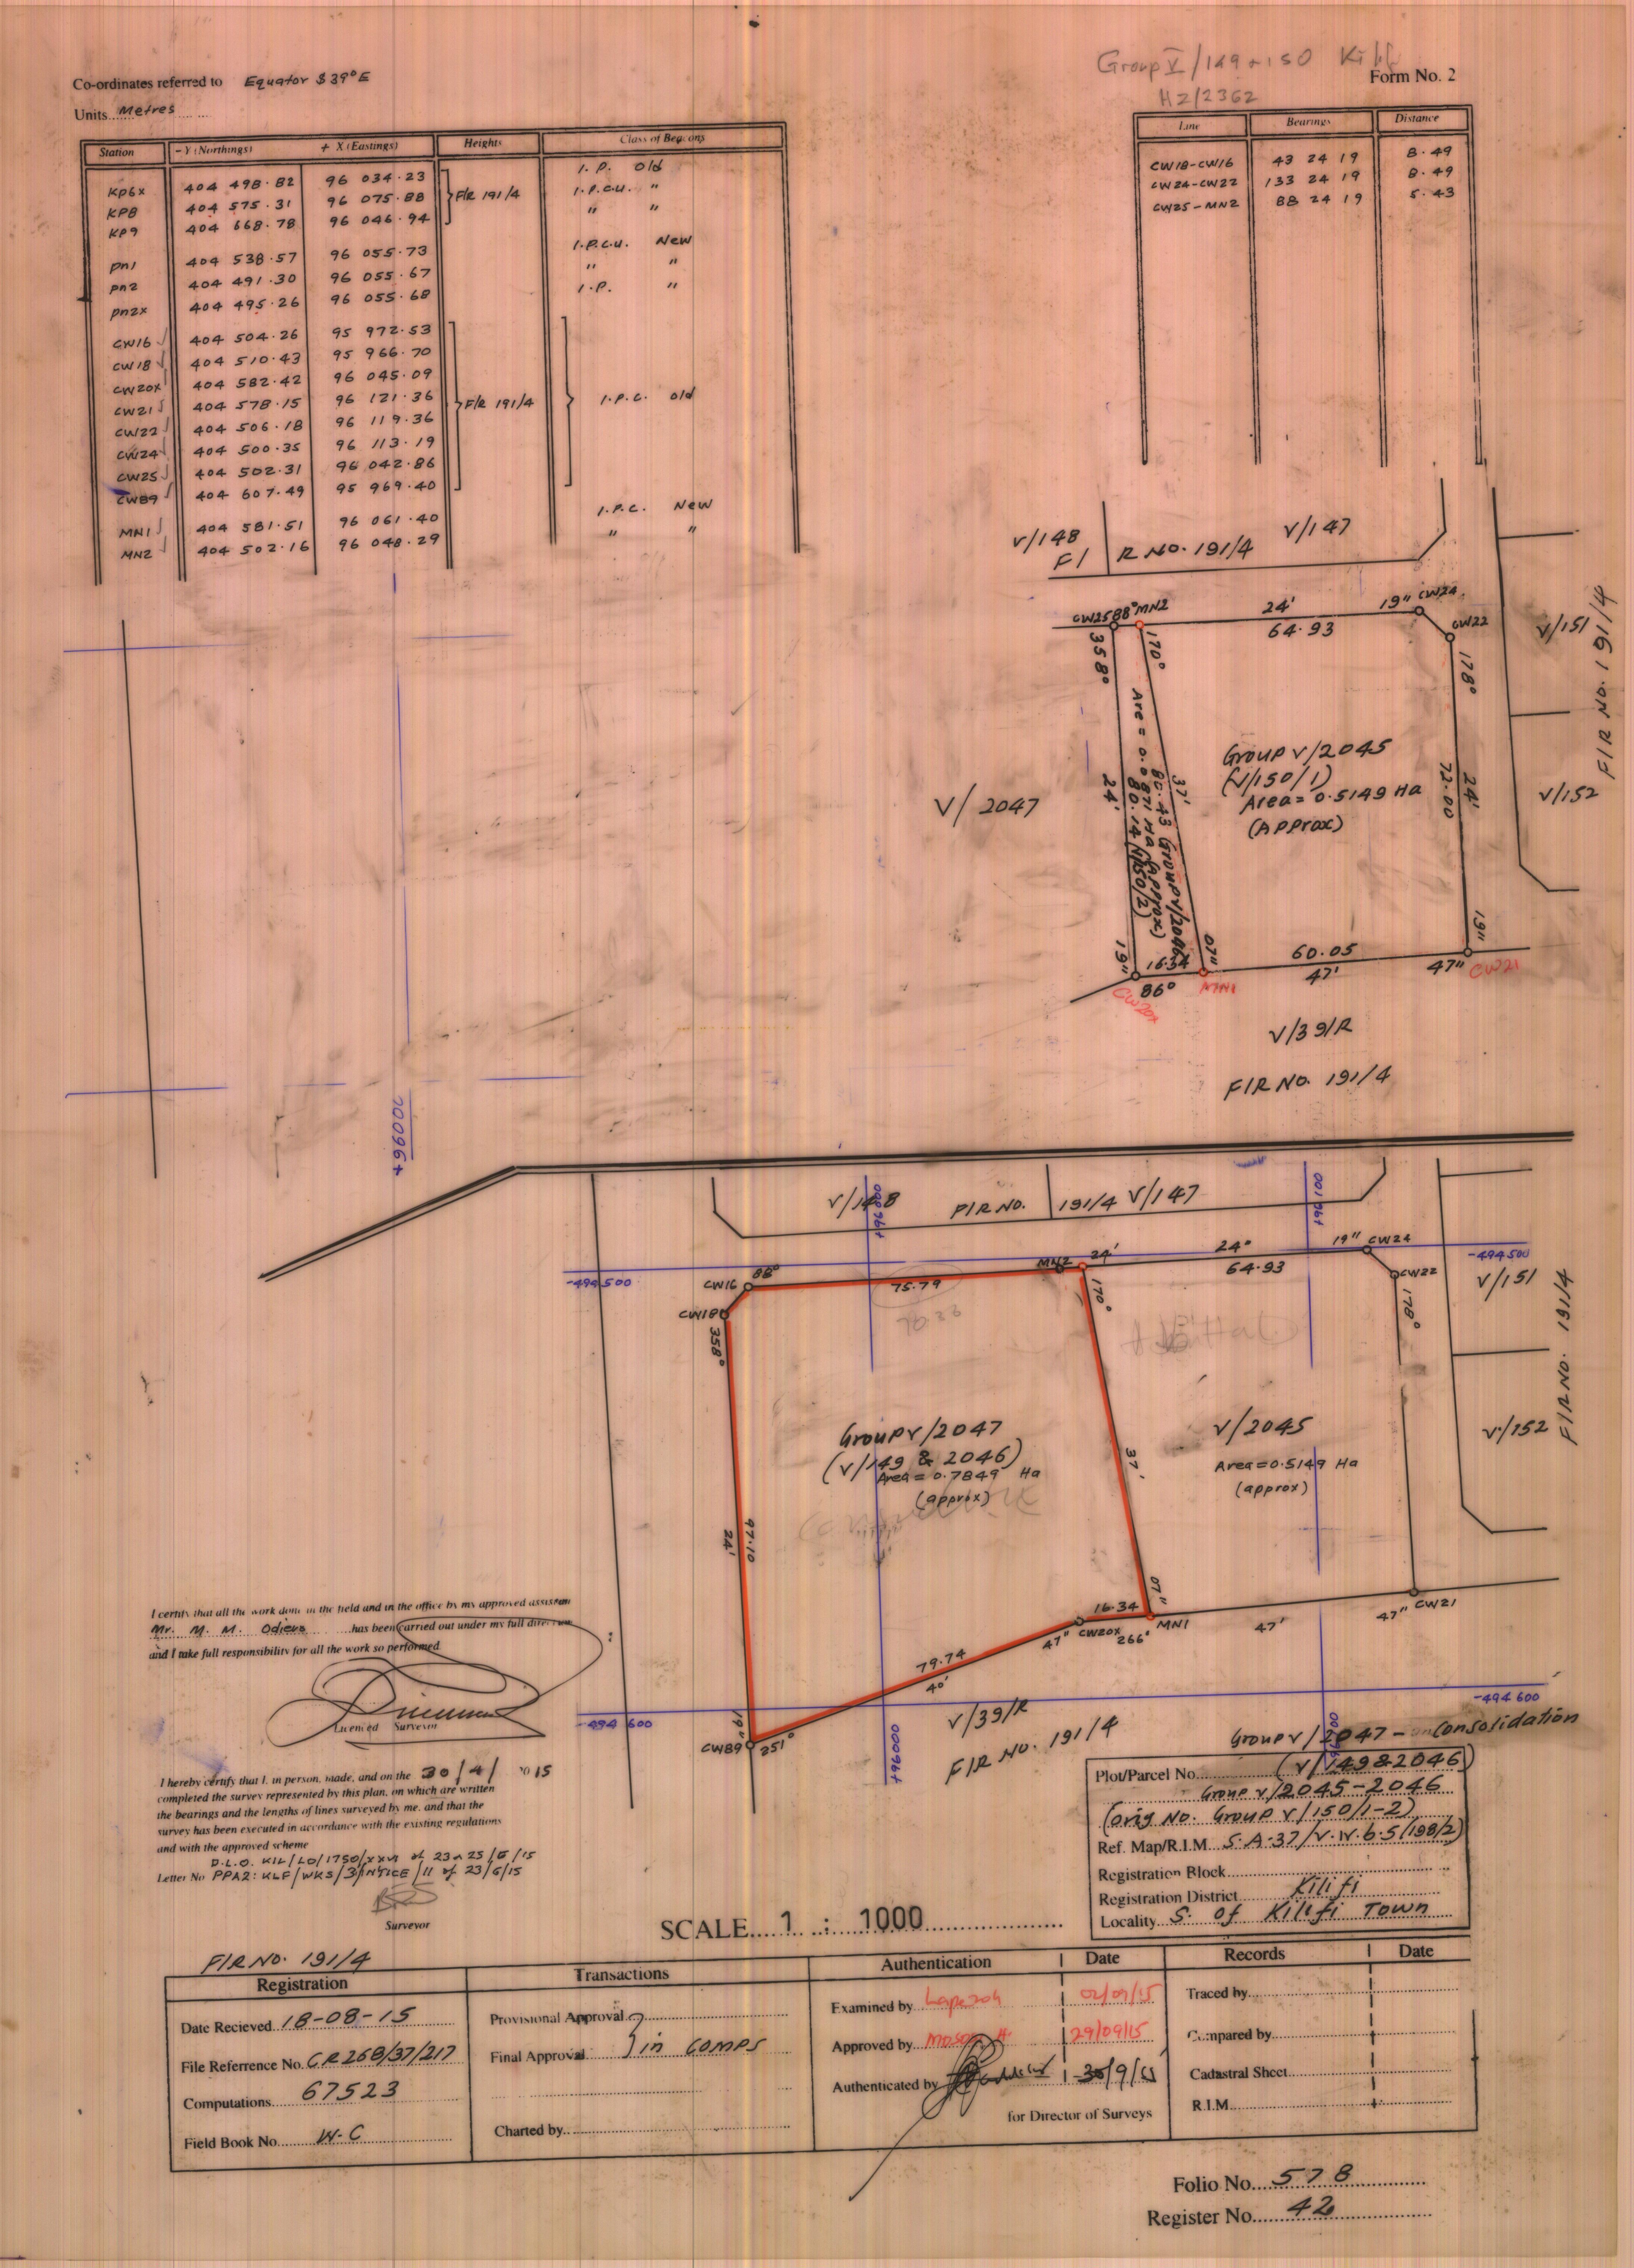 Group V/149 & 150 Kilifi
HZ/2362
Form No. 2
Co-ordinates referred to Equator $ 39°E
Units Metres
Station - Y (Northings) + X (Eastings) Heights Class of Beacons
KP6x 404 498.82 96 034.23 I.P. Old
KP8 404 575.31 96 075.88 F/R 191/4 I.P.C.U. "
KP9 404 668.78 96 046.94 " "
pn1 404 538.57 96 055.73 I.P.C.U. New
pn2 404 491.30 96 055.67 " "
pn2x 404 495.26 96 055.68 I.P. "
CW16 404 504.26 95 972.53
CW18 404 510.43 95 966.70
CW20x 404 582.42 96 045.09
CW21 404 578.15 96 121.36 F/R 191/4 I.P.C. Old
CW22 404 506.18 96 119.36
CW24 404 500.35 96 113.19
CW25 404 502.31 96 042.86
CW89 404 607.49 95 969.40
MN1 404 581.51 96 061.40 I.P.C. New
MN2 404 502.16 96 048.29 " "
Line Bearings Distance
CW18-CW16 43 24 19 8.49
CW24-CW22 133 24 19 8.49
CW25-MN2 88 24 19 5.43
V/148 V/147
F/R NO. 191/4
CW25 88° MN2 24' 19" CW24
64.93
CW22
358° 170° 178°
V/151
F/R NO. 191/4
V/152
Group V/2045
(V/150/1)
Area = 0.5149 Ha
(Approx)
V/2047
24' 37' 24'
72.00
80.43 Group V/2046
Are = 0.0871 Ha (Approx)
80.14 (V/150/2)
19" 07" 19"
16.34 60.05
86° 47' 47"
CW20x MN1 CW21
V/39/R
F/R NO. 191/4
+96000
V/148 F/R NO. 191/4 V/147
+96000 +96100
-494500 -494500
CW16 88° 75.79 MN2 24' 24° 19" CW24
64.93
CW22
CW18
358° 170° 178°
V/151
F/R NO. 191/4
V/152
Group V/2047
(V/149 & 2046)
Area = 0.7849 Ha
(approx)
V/2045
Area = 0.5149 Ha
(approx)
24' 97.10 37'
07"
16.34 MN1 47' 47" CW21
47" CW20x 266°
79.74
40'
19"
CW89 251°
-494600 -494600
+96000
V/39/R
F/R NO. 191/4
I certify that all the work done in the field and in the office by my approved assistan
Mr. M. M. Odiero has been carried out under my full direction
and I take full responsibility for all the work so performed
Licenced Surveyor
I hereby certify that I. in person. made, and on the 30/4/ 2015
completed the survey represented by this plan. on which are written
the bearings and the lengths of lines surveyed by me. and that the
survey has been executed in accordance with the existing regulations
and with the approved scheme
D.L.O. KIL/LO/1750/
Letter No PPA2: KLF/WKS/3/NTICE/11 of 23/6/15
Surveyor
SCALE 1 : 1000
Group V/2047 - Consolidation
Plot/Parcel No. (V/149&2046)
Group V/2045-2046
(Orig No. Group V/150/1-2)
Ref. Map/R.I.M. S.A-37/V.W.6.5/198/2)
Registration Block
Registration District Kilifi
Locality S. of Kilifi Town
F/R NO. 191/4
Registration Transactions Authentication Date Records Date
Date Recieved 18-08-15 Provisional Approval Examined by 02/09/15 Traced by
File Referrence No. CR268/37/217 Final Approval in comps Approved by 29/09/15 Compared by
Computations 67523 Authenticated by 30/9/15 Cadastral Sheet
for Director of Surveys R.I.M.
Field Book No. W.C Charted by
Folio No. 578
Register No. 42